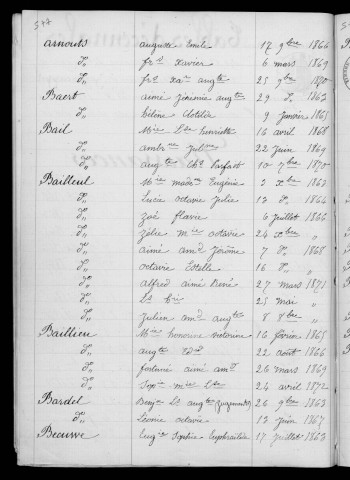 344
arnouts auguste Emile 17 9bre 1866
d° frs xavier 6 mars 1869
d° frs xer augte 25 9bre 1870
Baert aimé Jérémie augte 29 d° 1863
d° hélène Clotilde 9 Janvier 1865
Bail Mie Lse henriette 16 avril 1868
d° ambrse 22 Juin 1869
d° augte Chs Parfait 10 7bre 1870
Bailleul Mie Eugénie 3 xbre 1863
d° Lucie octavie Julie 13 d° 1864
d° Zoé flavie 6 Juillet 1866
d° Zélie Mie octavie 24 xbre "
d° aimé amd Jérôme 7 d° 1868
d° octavie Estelle 16 d° "
d° alfred aimé René 27 mars 1871
d° Ls 25 mai "
d° Julien amd augte 8 8bre "
Baillieu Mie honorine victorine 16 février 1865
d° augte 22 août 1866
d° fortuné aimé amd 26 mars 1869
d° Sopie Mie Lse 24 avril 1872
Bardel Benja Ls augte (jugement) 26 9bre 1863
d° Léonie octavie 13 Juin 1867
Beauwe Eugie Sophie Euphrasie 17 Juillet 1863